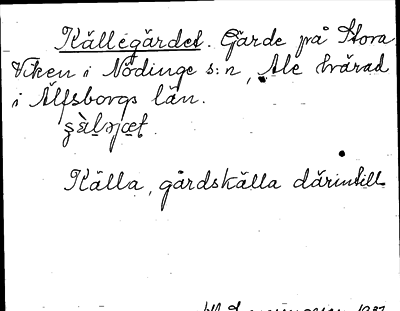 Källegärdet. Gärde på Stora
Viken i Nödinge s:n, Ale härad
i Älfsborgs län.
Källa, gårdskälla därintill